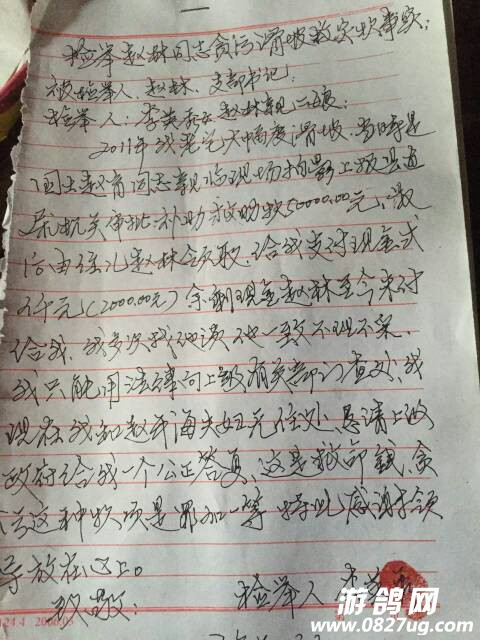 一
检举赵林同志贪污滑坡救灾款事实:
被检举人、赵林、支部书记:
检举人:李英 赵林亲二娘:
2011年我老宅大幅度滑坡,当时是
国土赵育同志亲临现场拍影上报县道
机关审批补助救助款50000.00元,
后由侄儿赵林领取,给我支付现金弍
仟元(2000.00元)余剩现金赵林至今未付
给我,我多次找他谈,他一致不理不采,
我只能用法律向上级有关部门查处,我
现在我和赵开海夫妇无住处,恳请上级
政府给我一个公正答复,这是救命钱,贪
污这种款项是罪加一等 特此感谢领
导放在心上。
致敬: 检举人 李英
124.4 2000.05
游鸽网
www.0827ug.com